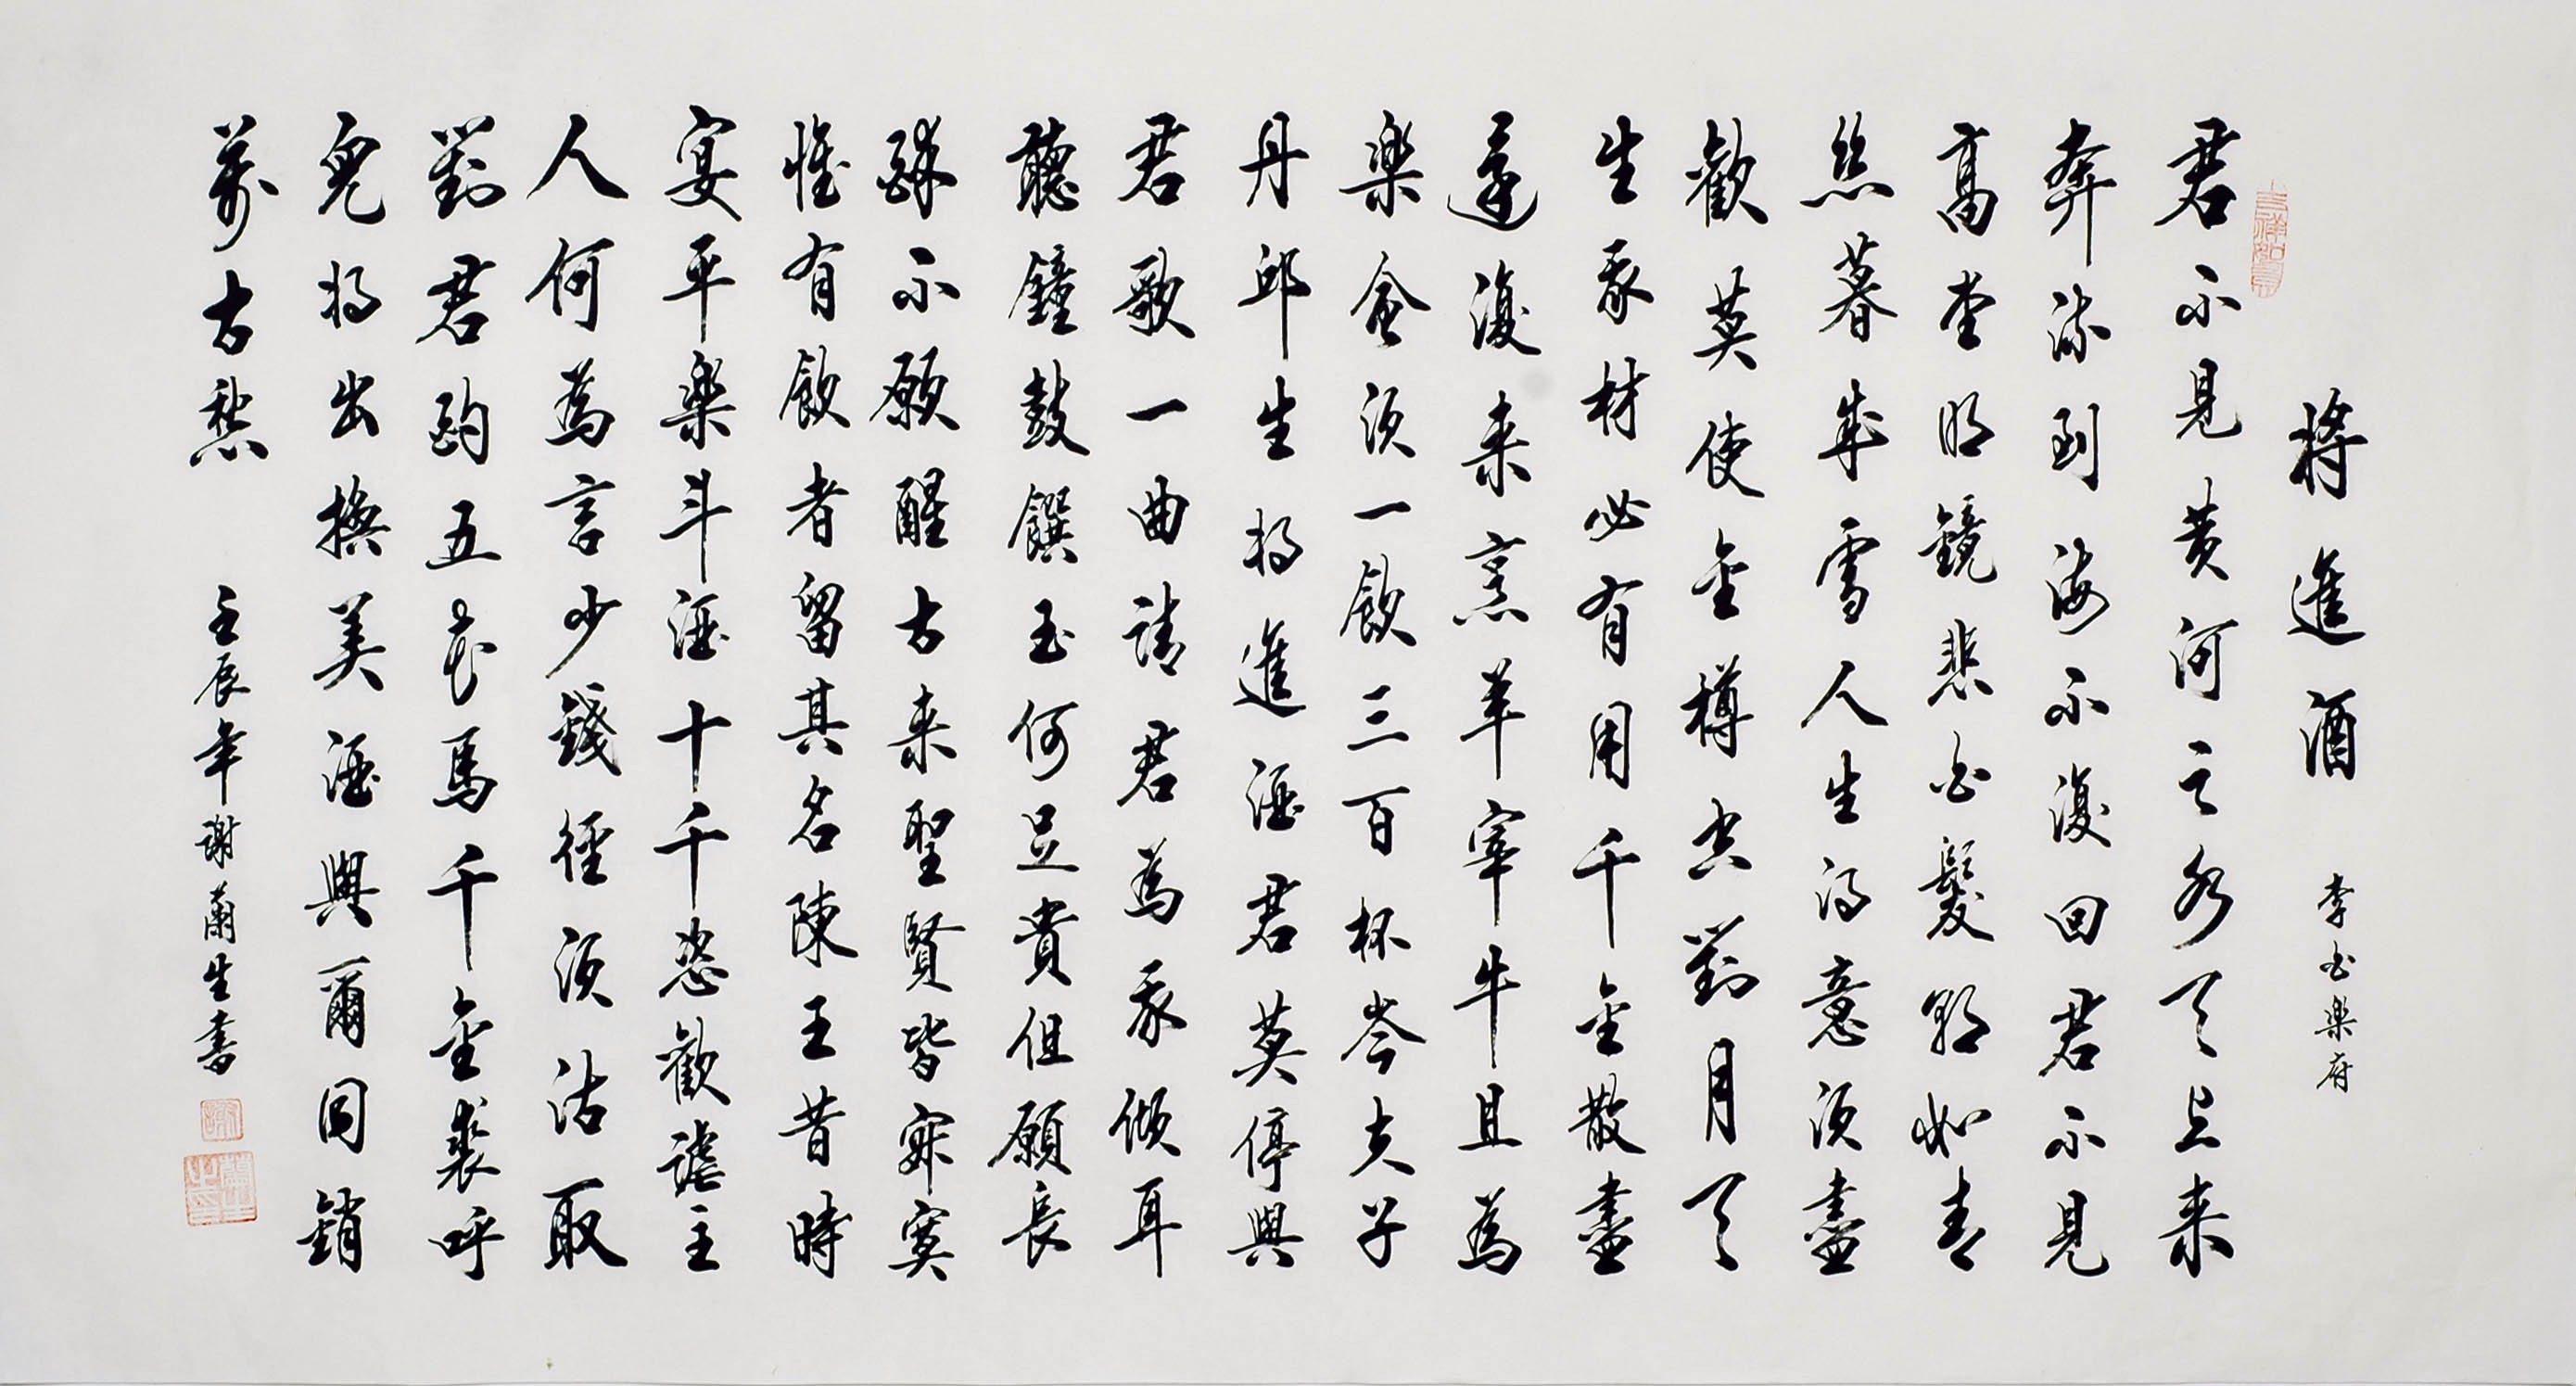 將進酒 李白樂府
吉祥如意
君不見黃河之水天上来
奔流到海不復回君不見
高堂明鏡悲白髮朝如青
絲暮成雪人生得意須盡
歡莫使金樽空對月天
生我材必有用千金散盡
還復来烹羊宰牛且為
樂會須一飲三百杯岑夫子
丹邱生將進酒君莫停與
君歌一曲請君為我傾耳
聽鐘鼓饌玉何足貴但願長
醉不願醒古来聖賢皆寂寞
惟有飲者留其名陳王昔時
宴平樂斗酒十千恣歡謔主
人何為言少錢徑須沽取
對君酌五花馬千金裘呼
兒將出換美酒與爾同銷
萬古愁 壬辰年謝蘭生書